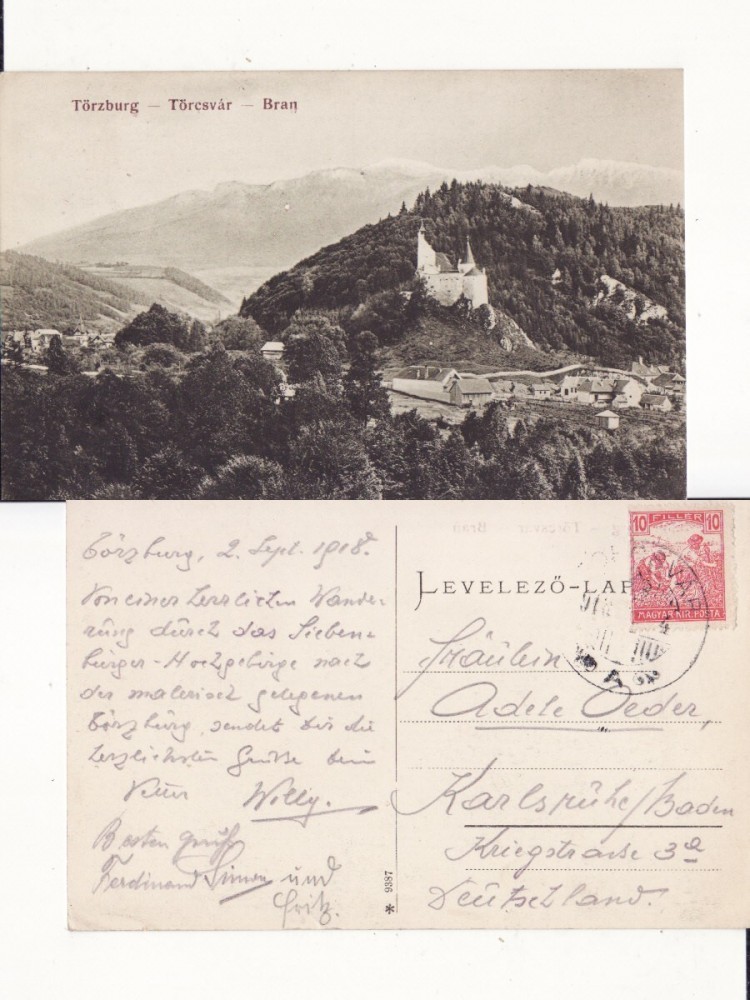 Törzburg — Törcsvár — Bran
Törzburg, 2. Sept. 1918.
Von einer herrlichen Wande-
rung durch das Sieben-
bürger-Hochgebirge nach
der malerisch gelegenen
Törzburg, sendet dir die
herzlichsten Grüße dein
Vetter Willy.
Besten Gruß
Ferdinand Simon und
Fritz.
* 9387
LEVELEZŐ-LAP
10 FILLER 10
MAGYAR KIR. POSTA
Fräulein
Adele Oeder,
Karlsruhe/Baden
Kriegstrasse 3a
Deutschland.